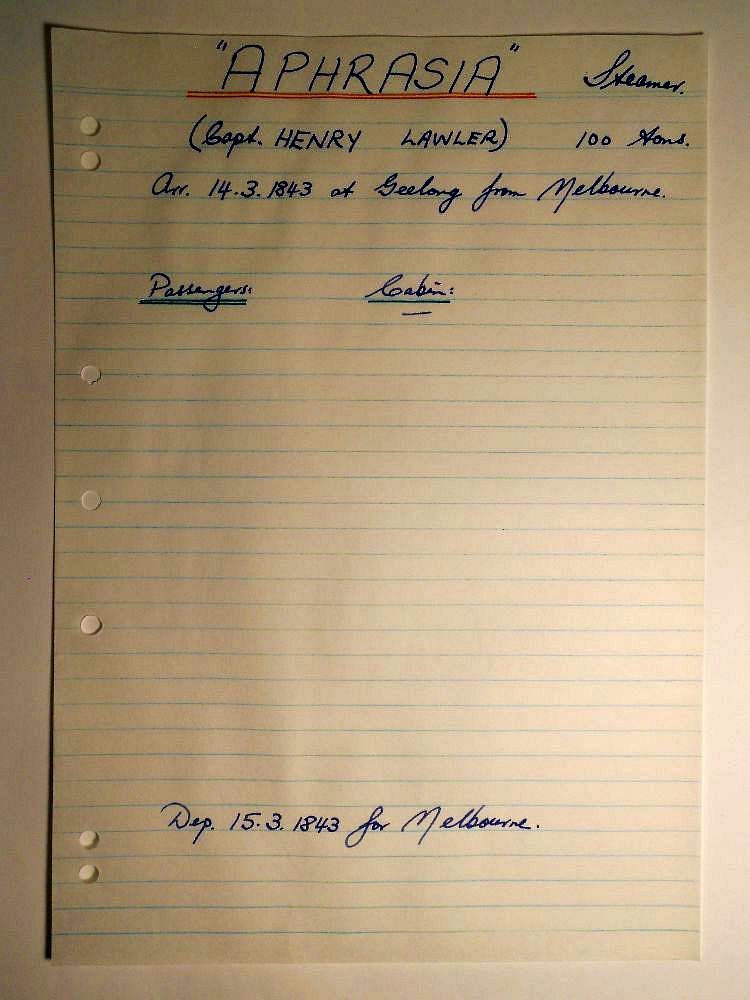 "APHRASIA" Steamer.
(Capt. HENRY LAWLER) 100 tons.
Arr. 14.3.1843 at Geelong from Melbourne.
Passengers: Cabin:
—
Dep. 15.3.1843 for Melbourne.